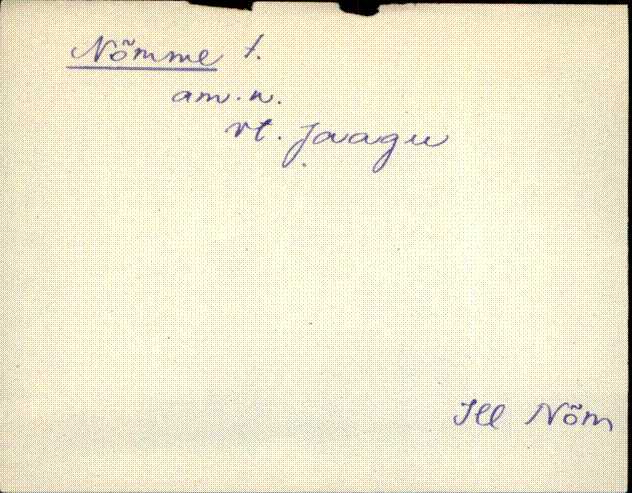 Nõmme t.
am. n.
vt. Jaagu
Ill Nõm